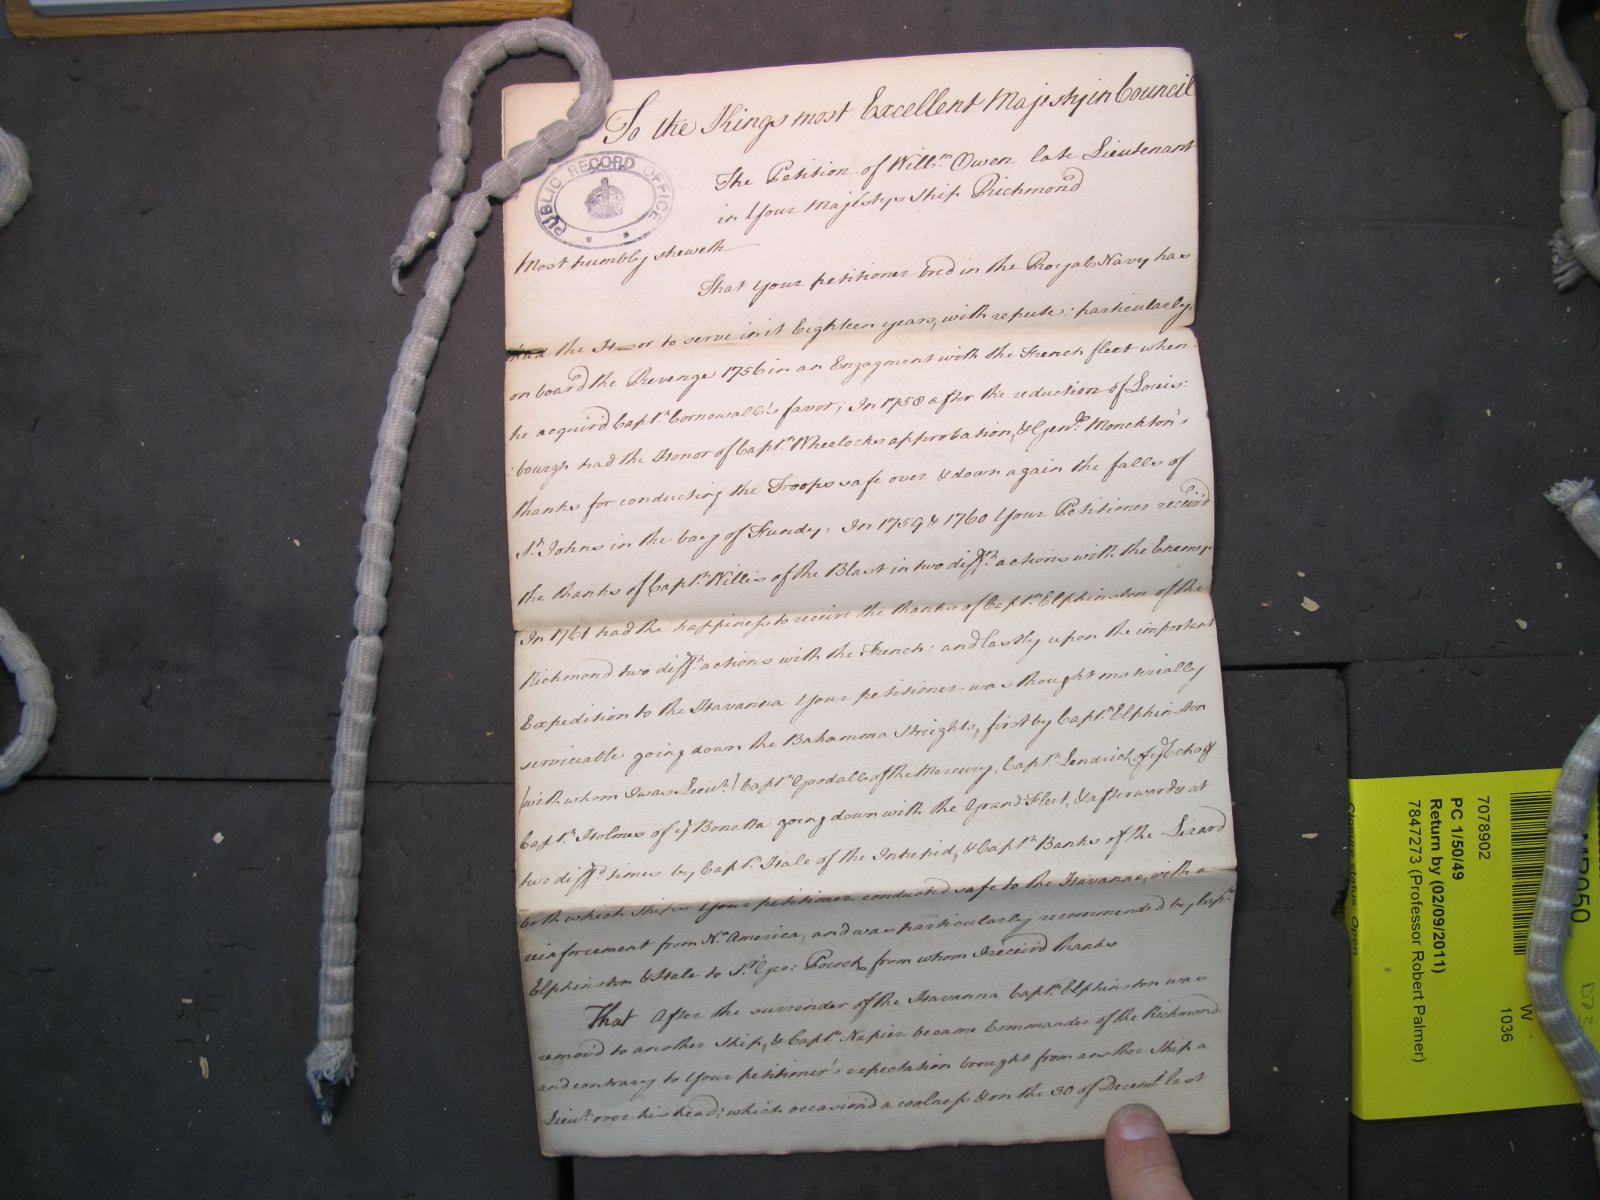 To the Kings most Excellent Majesty in Council
The Petition of Willm Owen late Lieutenant
in Your Majestys Ship Richmond
PUBLIC RECORD OFFICE
Most humbly sheweth
That Your petitioner bred in the Royal Navy has
had the H—or to serve in it Eighteen years, with repute: particularly,
on board the Revenge 1756 in an Engagment with the French fleet when
he acquir'd Capt. Cornewall's favor, In 1758 after the reduction of Louis:
:bourgh had the Honor of Capt. Wheelocks approbation, & Genl. Monckton's
thanks for conducting the Troops safe over & down again the falls of
St. Johns in the bay of Fundy; In 1759 & 1760 Your Petitioner receiv'd
the thanks of Capt. Willis of the Blast in two difft. actions with the Enemy
In 1761 had the happiness to receive the thanks of Capt. Elphinston of the
Richmond two difft. actions with the French: and lastly upon the important
Expedition to the Havanna Your petitioner was thought materially
serviceable going down the Bahamma Streights, first by Capt. Elphinston
(with whom I was Lieut.) Capt. Goodall of the Mercury, Capt. Lendrick of ye Echo &
Capt. Holmes of ye Bonetta going down with the Grand Fleet, & afterwards at
two difft. times by Capt. Hale of the Intrepid, & Capt. Banks of the Lizard
both which Ships Your petitioner conducted safe to the Havanna, with a
reinforcement from No. America, and was particularly recommended by Capt.
Elphinston & Hale to Sr. Geo: Pocock from whom I receiv'd thanks
That After the surrinder of the Havanna Capt. Elphinston was
remov'd to another Ship, & Capt. Napier became Commander of the Richmond
and contrary to Your petitioner's expectation brought from another Ship a
Lieut. over his head; which occasion'd a coolness & on the 30 of Decemr. last
7078902
PC 1/50/49
Return by (02/09/2011)
7847273 (Professor Robert Palmer)
W
1036